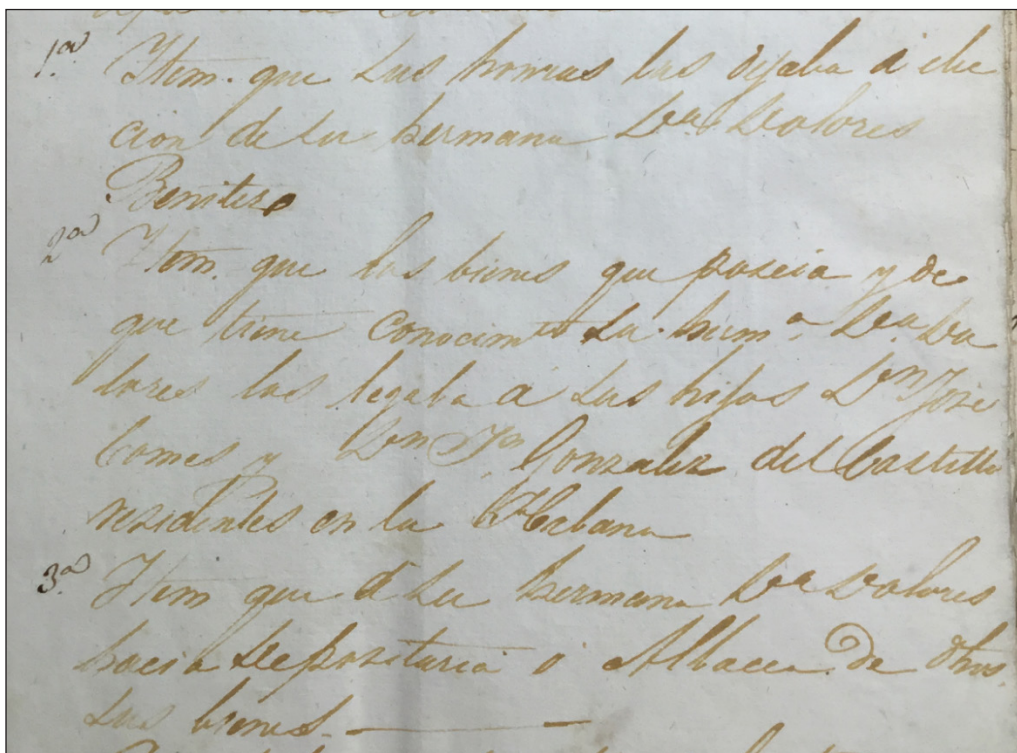 1.ª Ytem. que sus honras las dejaba á elec
cion de su hermana D.ª Dolores
Benitez
2.ª Ytem. que los bienes que poseia y de
que tiene conocim.to su herm.ª D.ª Do
lores los legaba a sus hijos D.n Jose
Comes y D.n J.n Gonzalez del Castillo
residentes en la Habana
3.ª Ytem que á su hermana D.ª Dolores
hacia depositaria ó Albacea de dhos.
sus bienes.